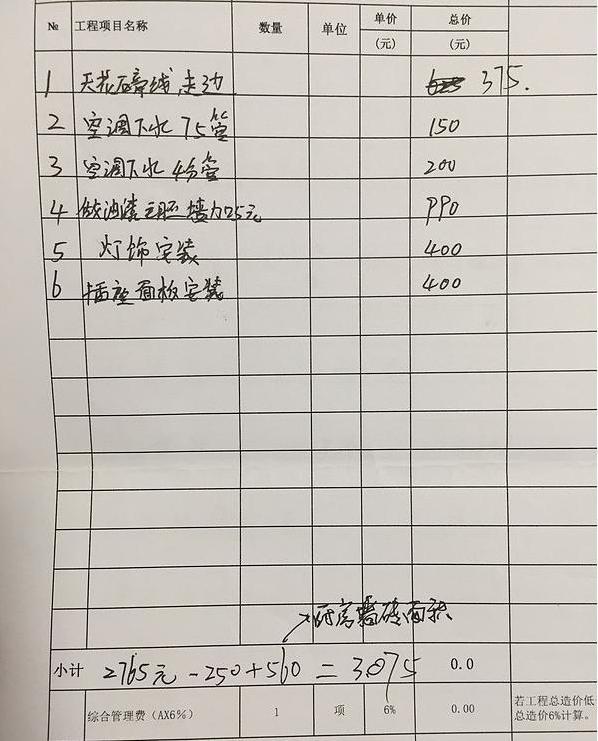 № 工程项目名称 数量 单位 单价 (元) 总价 (元)
1 天花石膏线走边 375.
2 空调下水 75管 150
3 空调下水 4分管 200
4 做油漆 墙 25元 990
5 灯饰安装 400
6 插座面板安装 400
厨房墙砖面积
小计 2765元 - 250 + 560 = 3075 0.0
综合管理费(AX6%) 1 项 6% 0.00 若工程总造价低
总造价6%计算。